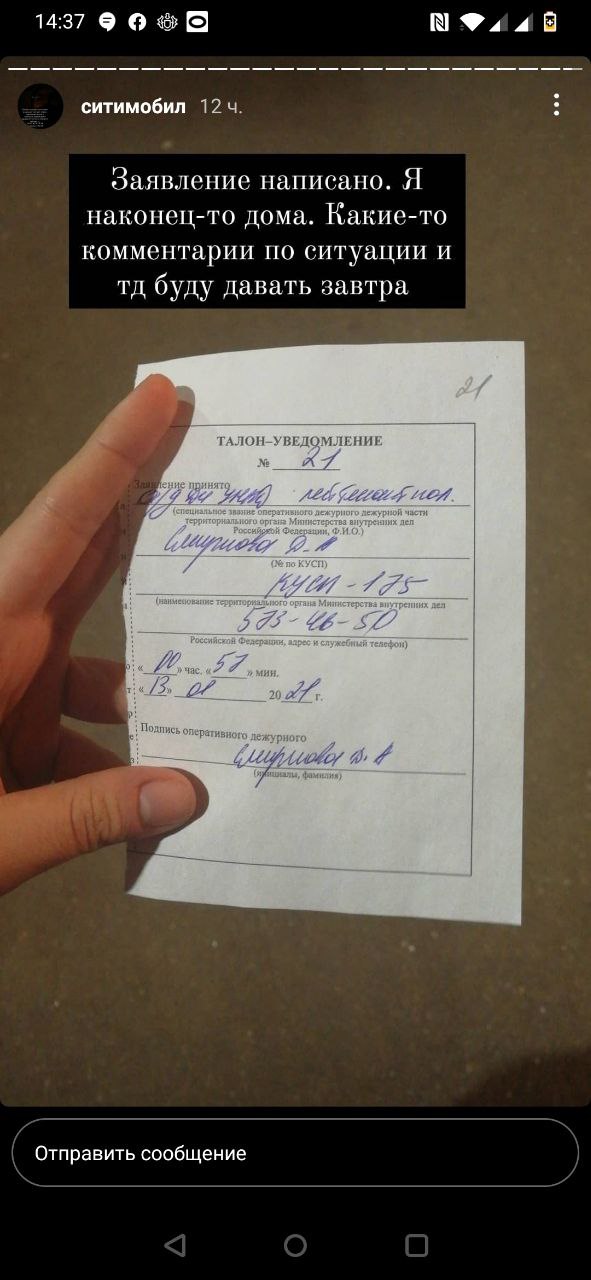 14:37
ситимобил 12 ч.
Заявление написано. Я
наконец-то дома. Какие-то
комментарии по ситуации и
тд буду давать завтра
21
ТАЛОН–УВЕДОМЛЕНИЕ
№ 21
Заявление принято
лейтенант пол.
(специальное звание оперативного дежурного дежурной части
территориального органа Министерства внутренних дел
Российской Федерации, Ф.И.О.)
Смирнова Д.А
(№ по КУСП)
КУСП-175
(наименование территориального органа Министерства внутренних дел
573-46-50
Российской Федерации, адрес и служебный телефон)
«00» час. «57» мин.
«13» 01 2021 г.
Подпись оперативного дежурного
Смирнова Д.А
(инициалы, фамилия)
Отправить сообщение